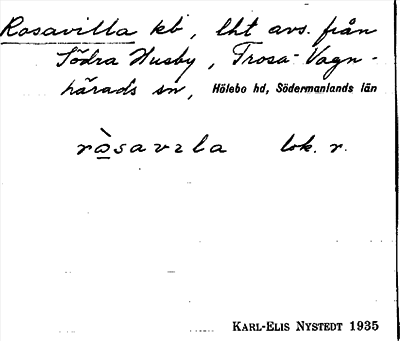 Rosavilla kb, lht avs. från
Södra Husby, Trosa-Vagn-
härads sn, Hölebo hd, Södermanlands län
ròsavıla lok. r.
KARL-ELIS NYSTEDT 1935